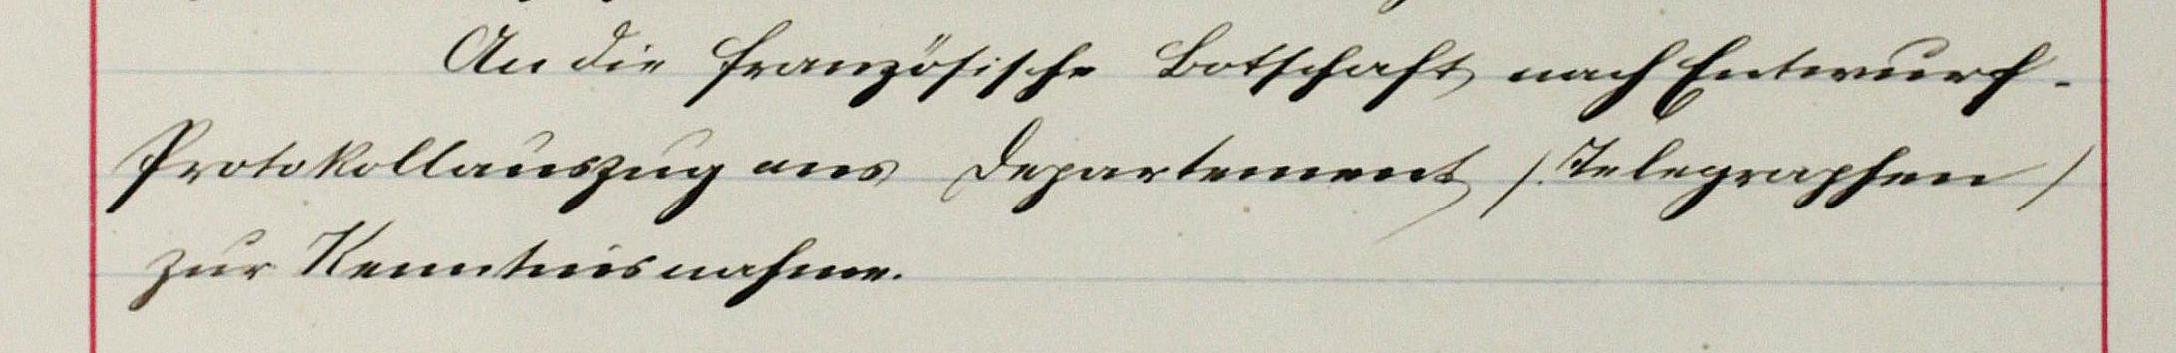 An die französische Botschaft nach Entwurf.
Protokollauszug ans Departement /Telegraphen/
zur Kenntnisnahme.